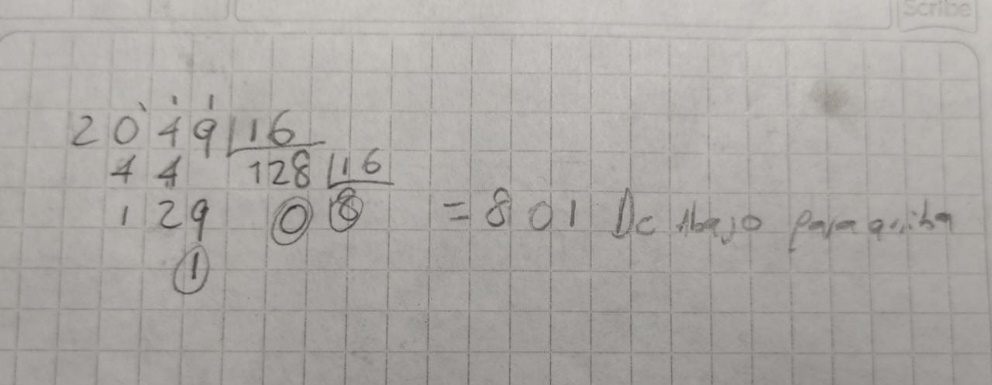 Scribe
2049 | 16
44 128 | 16
129 0 8 = 801 De Abajo para arriba
1